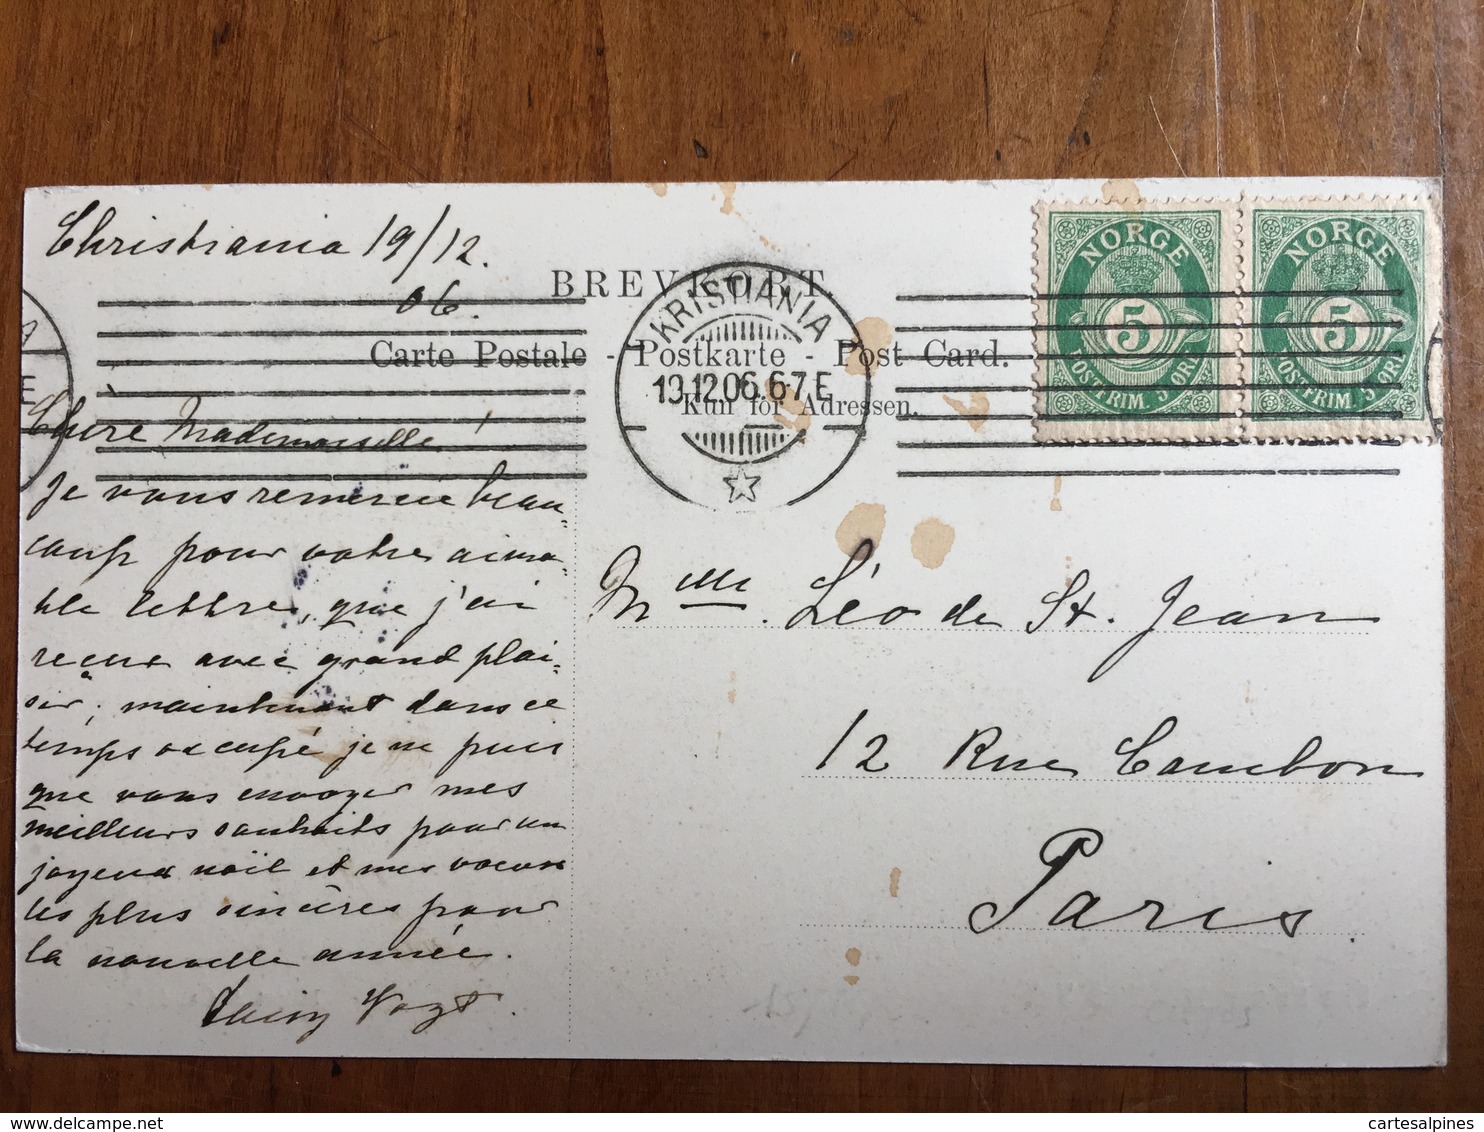 Christiania 19/12.
06.
BREVKORT.
Carte Postale - Postkarte - Post Card.
Kun for Adressen.
KRISTIANIA
19.12.06.6-7 E
NORGE
5
POSTFRIM. 5 ØRE
NORGE
5
POSTFRIM. 5 ØRE
Chère Mademoiselle!
Je vous remercie beau-
coup pour votre aima-
ble lettre, que j'ai
reçue avec grand plai-
sir; maintenant dans ce
temps occupé je ne puis
que vous envoyer mes
meilleurs souhaits pour un
joyeux noël et mes voeux
les plus sincères pour
la nouvelle année.
Vogt.
Mlle. Léo de St. Jean
12 Rue Cambon
Paris.
cartesalpines